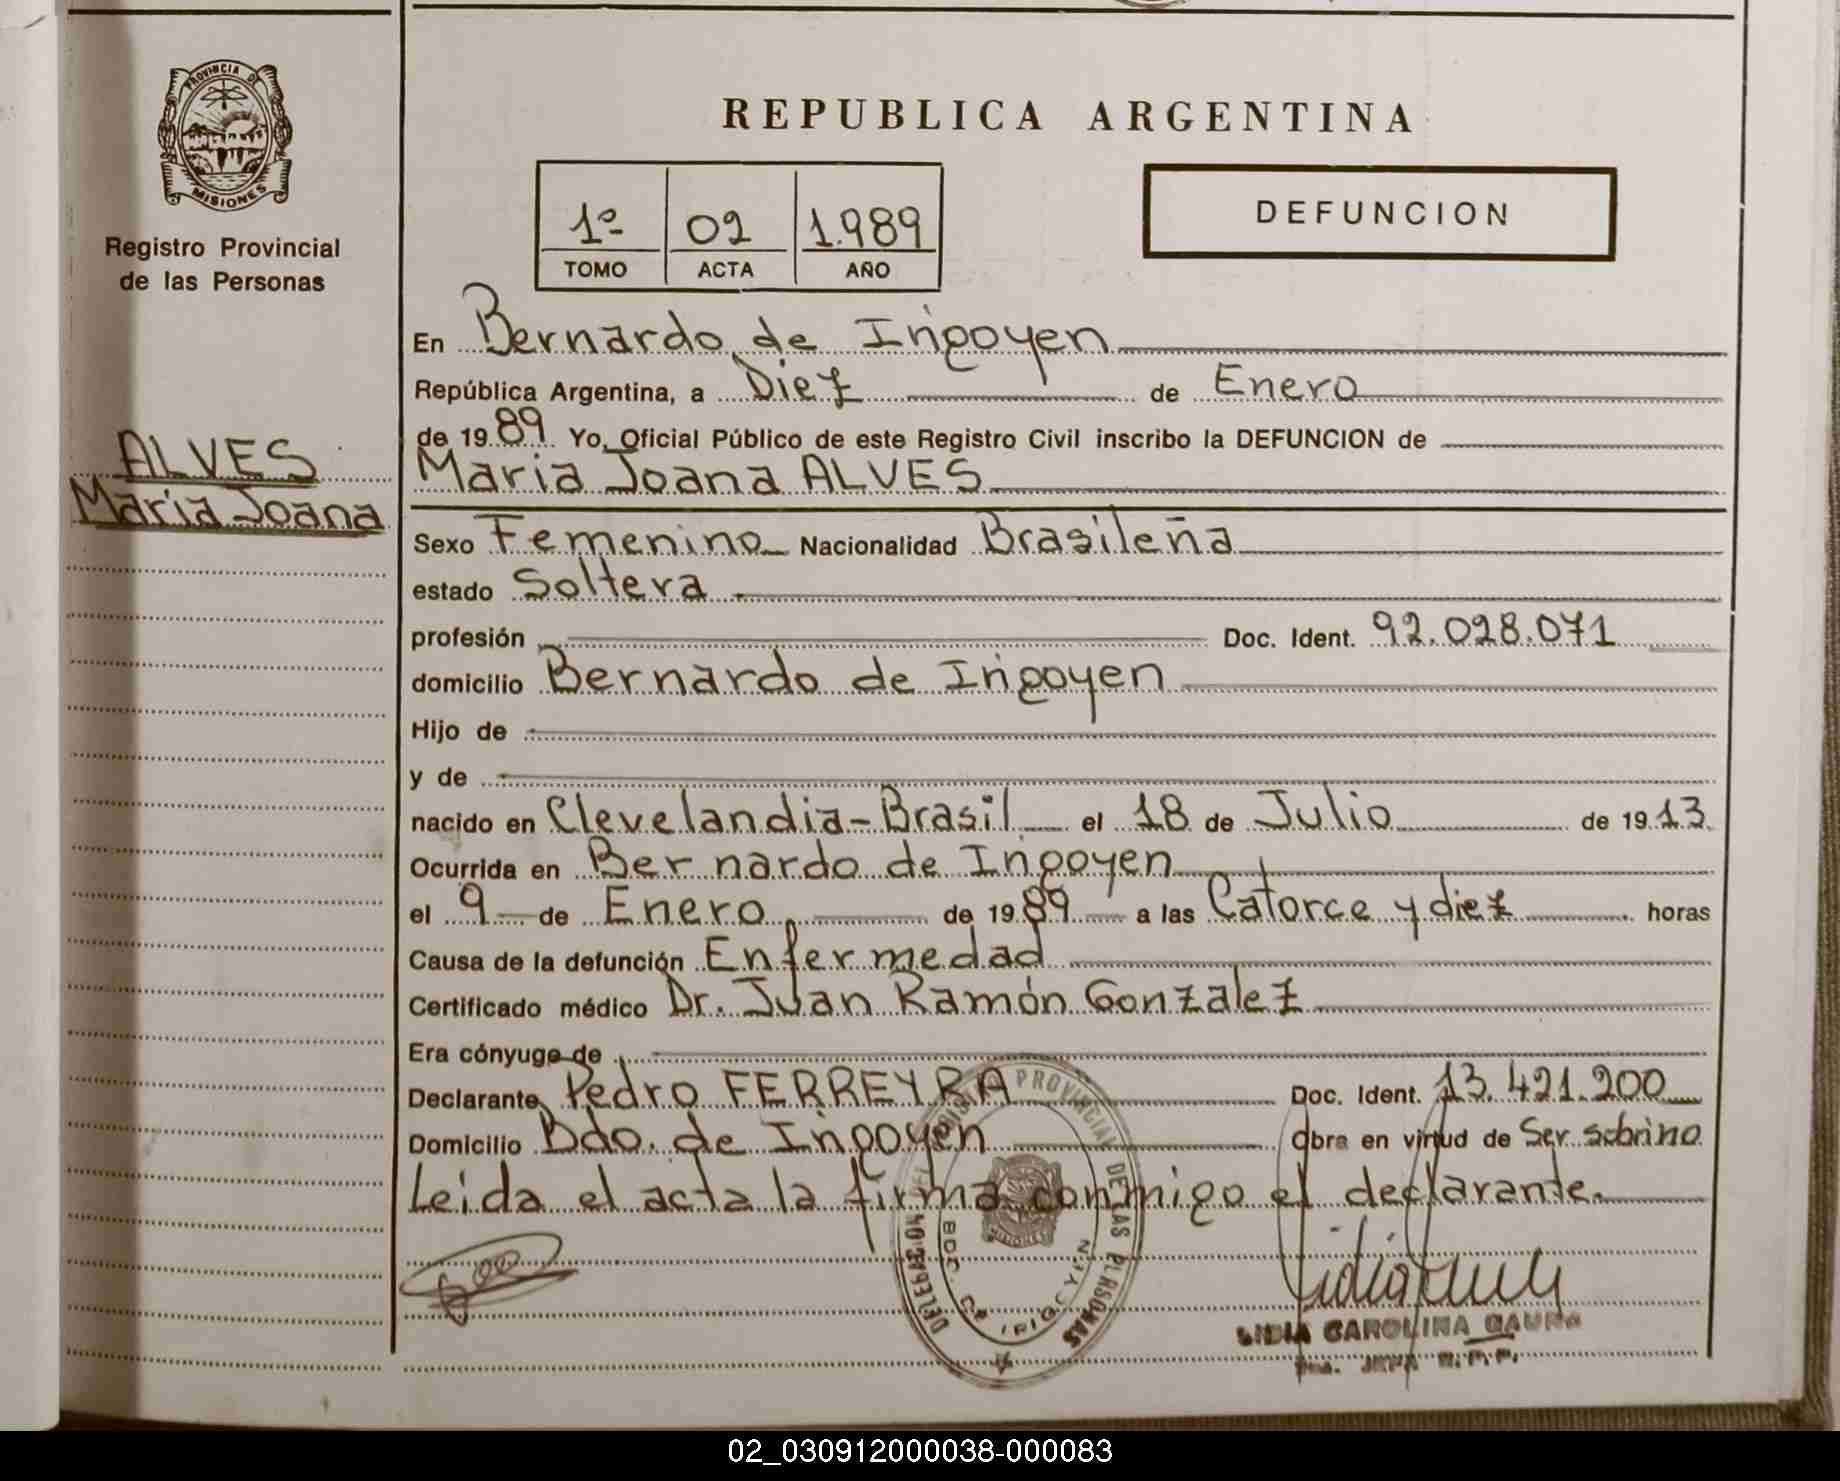 PROVINCIA DE
MISIONES
Registro Provincial
de las Personas
ALVES
María Joana
REPUBLICA ARGENTINA
1º 02 1.989
TOMO ACTA AÑO
DEFUNCION
En Bernardo de Irigoyen
República Argentina, a Diez de Enero
de 1989 Yo, Oficial Público de este Registro Civil inscribo la DEFUNCION de
María Joana ALVES
Sexo Femenino Nacionalidad Brasileña
estado Soltera
profesión Doc. Ident. 92.028.071
domicilio Bernardo de Irigoyen
Hijo de
y de
nacido en Clevelandia-Brasil el 18 de Julio de 1913
Ocurrida en Bernardo de Irigoyen
el 9 de Enero de 1989 a las Catorce y diez horas
Causa de la defunción Enfermedad
Certificado médico Dr. Juan Ramón Gonzalez
Era cónyuge de
Declarante Pedro FERREYRA Doc. Ident. 13.421.200
Domicilio Bdo. de Irigoyen Obra en virtud de Ser sobrino
Leida el acta la firma conmigo el declarante.
PROVINCIAL DE LAS PERSONAS
MISIONES
BDO. DE IRIGOYEN
LIDIA CAROLINA
JEFA R.P.P.
02_030912000038-000083